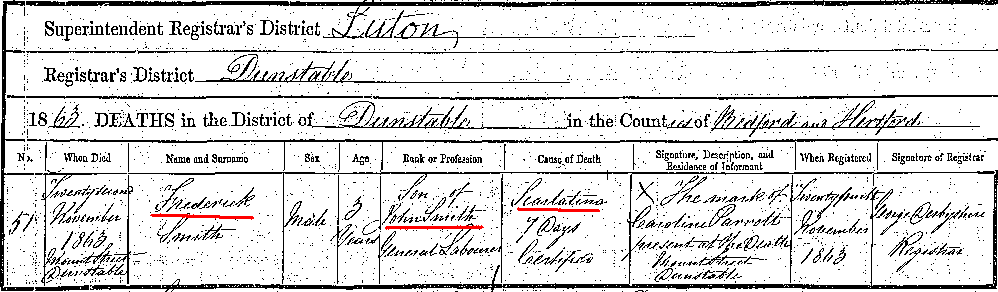 Superintendent Registrar's District Luton
Registrar's District Dunstable
1863 DEATHS in the District of Dunstable in the Counties of Bedford and Hertford
No. When Died Name and Surname Sex Age Rank or Profession Cause of Death Signature, Description, and Residence of Informant When Registered Signature of Registrar
51
Twenty second
November
1863
Mount Street
Dunstable
Frederick
Smith
Male
3
Years
Son of
John Smith
General Labourer
Scarlatina
7 Days
Certified
X The mark of
Caroline Parrott
present at the Death
Mount Street
Dunstable
Twenty fourth
November
1863
George Derbyshire
Registrar